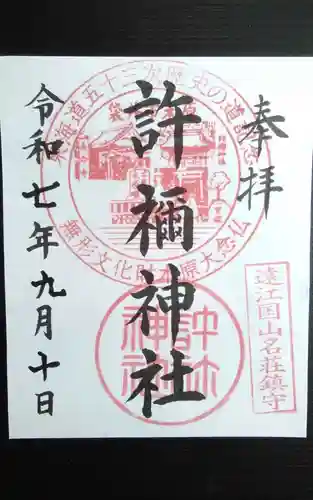 奉拝
許禰神社
令和七年九月十日
東海道五十三次歴史の道記念
無形文化財木原大念仏
遠江国山名荘鎮守
許祢神社